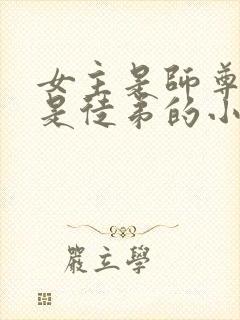 女主是師尊
是徒弟的小
嚴立學